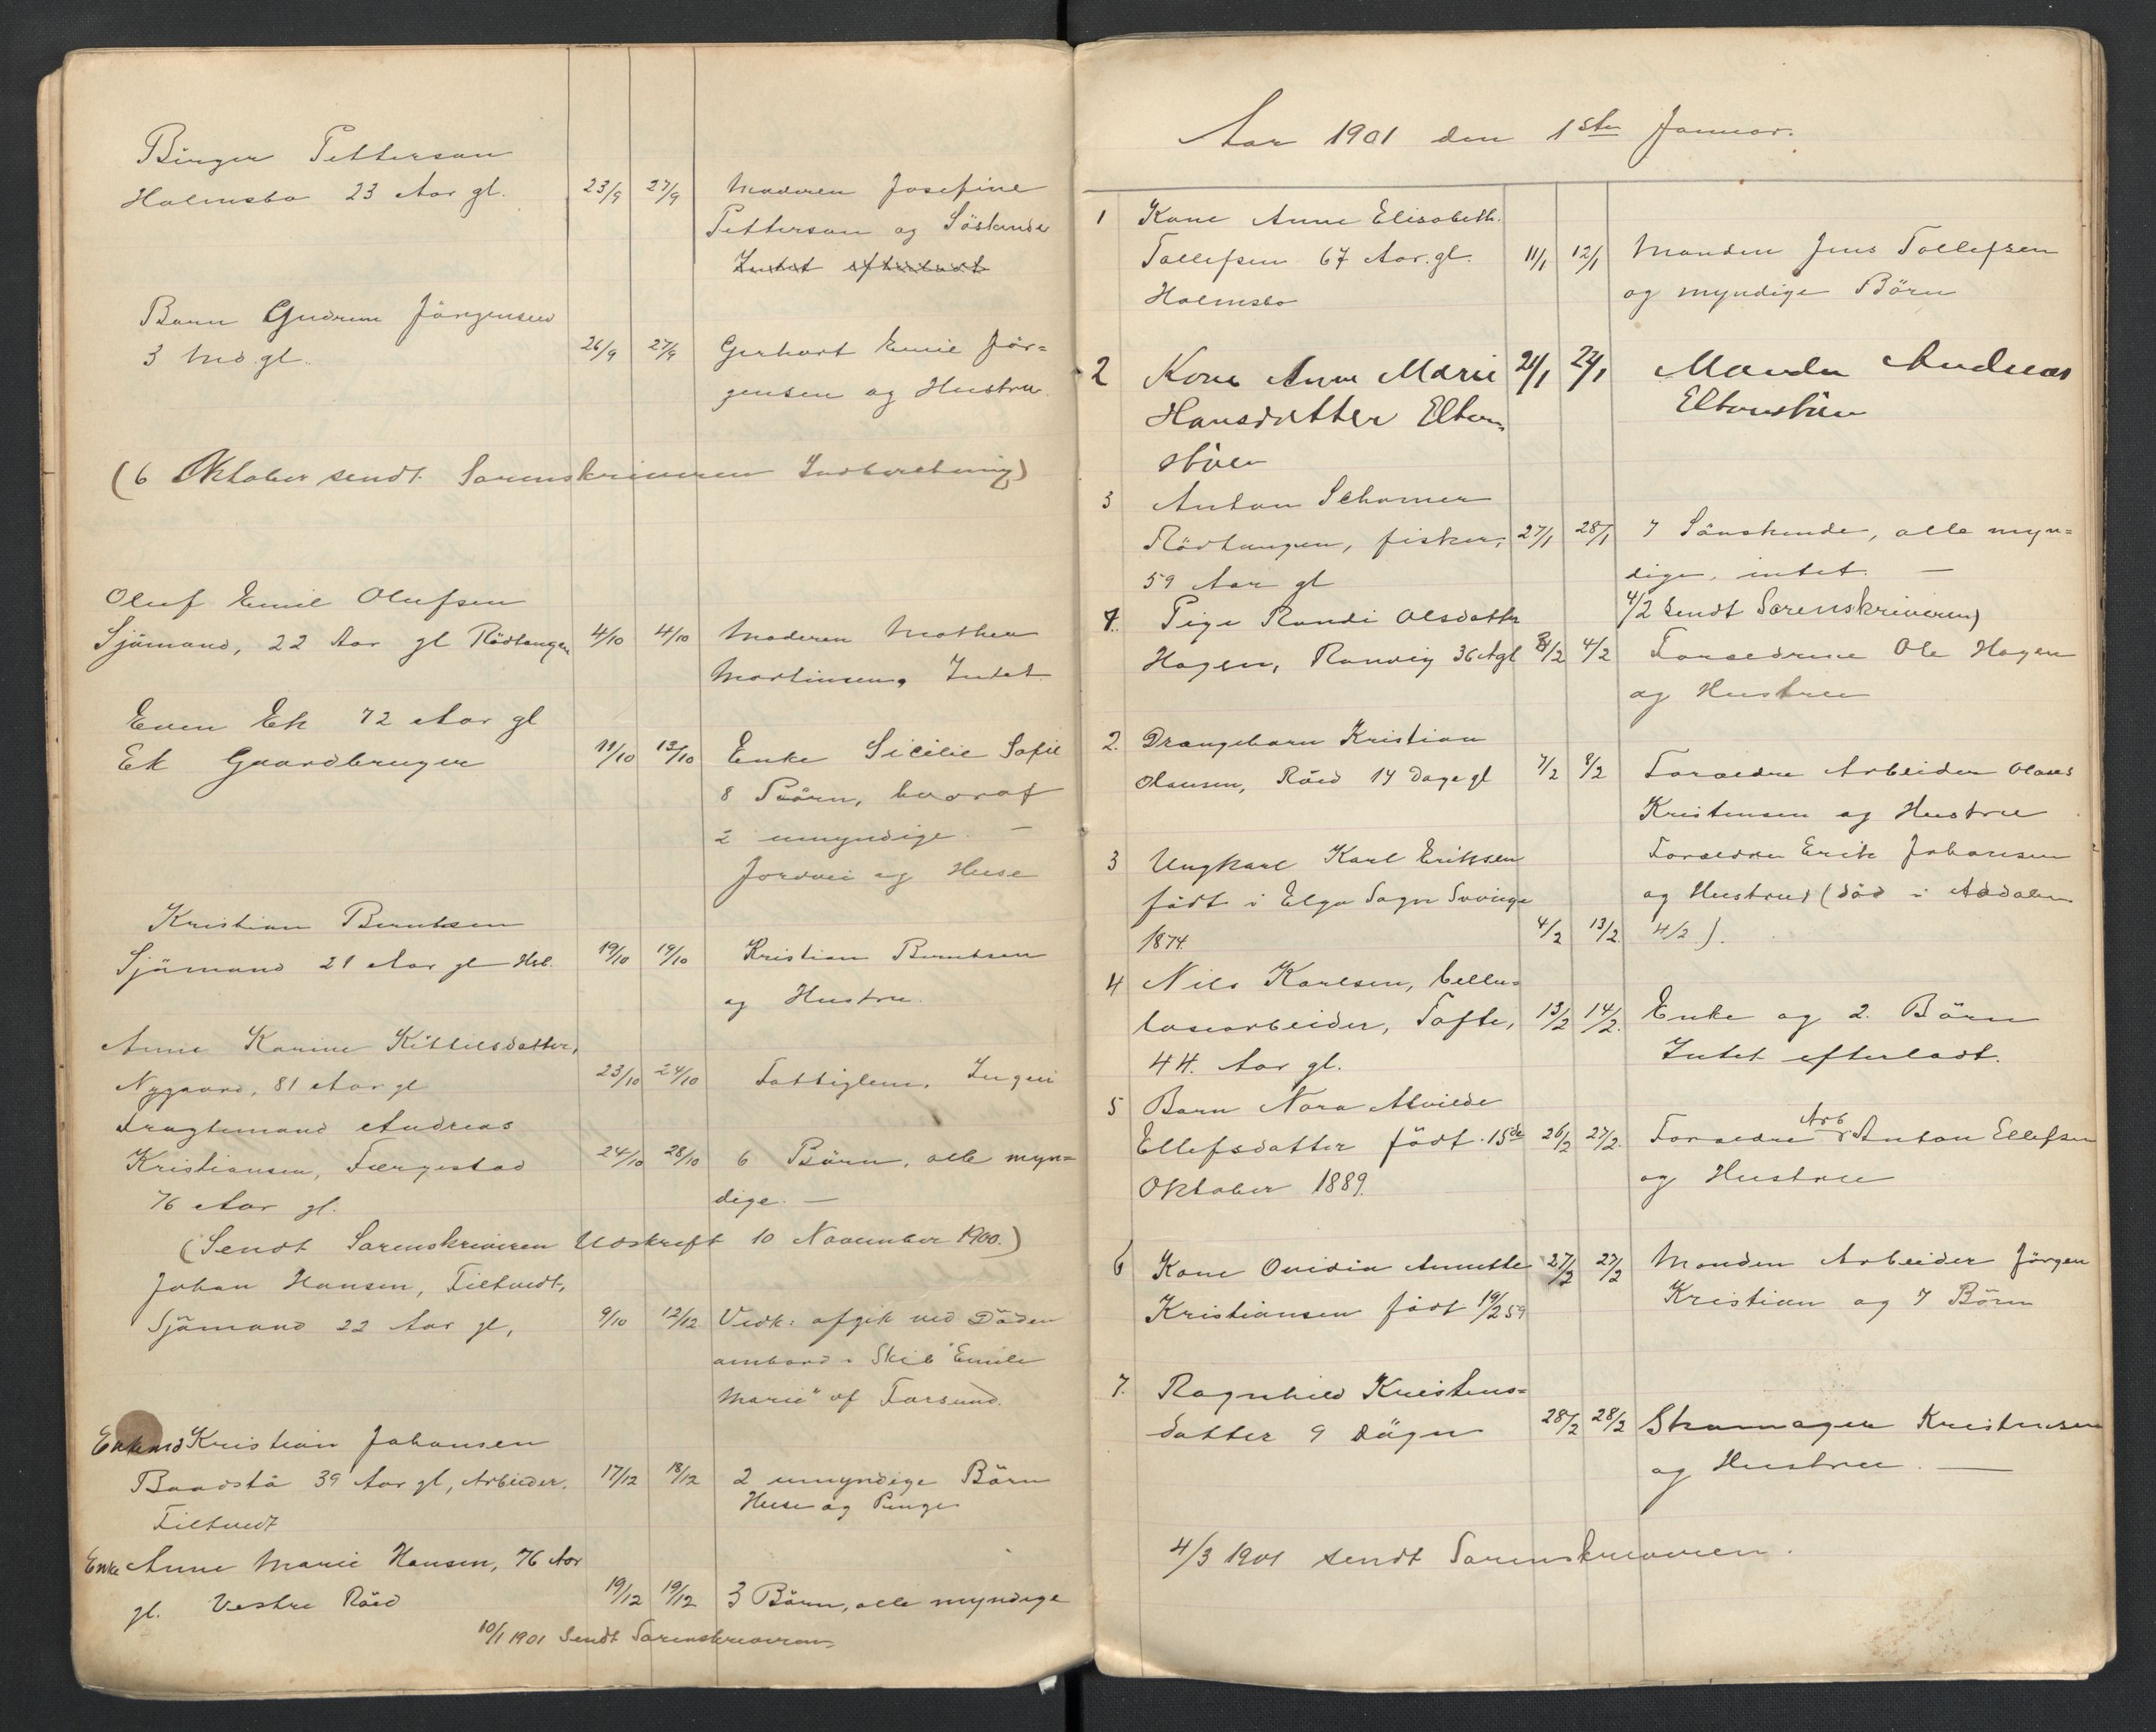 Birger Petterson
Holmsbo 23 Aar gl. 23/9 27/9 Moderen Josefine
Petterson og Söskende
Intet efterladt
Barn Gudrun Jörgensen
3 Md. gl. 26/9 27/9 Gerhart Emil Jör=
gensen og Hustru.
(6 Oktober sendt Sorenskriveren Indberetning)
Oluf Emil Olufsen
Sjömand, 22 Aar gl Rödtangen 4/10 4/10 Moderen Mathea
Martinsen, Intet
Even Ek 72 Aar gl
Ek Gaardbruger 11/10 13/10 Enke Sicilie Sofie
8 Börn, hvoraf
2 umyndige. —
Jordvei og Huse
Kristian Berntsen
Sjömand 21 Aar gl Hsb. 19/10 19/10 Kristian Berntsen
og Hustru.
Anne Karine Kittilsdatter,
Nygaard, 81 Aar gl 23/10 24/10 Fattiglem. Ingen
Fragtemand Andreas
Kristiansen, Færgestad 24/10 28/10 6 Börn, alle myn=
76 Aar gl. dige. —
(Sendt Sorenskriveren Udskrift 10 November 1900.)
Johan Hansen, Filtvedt,
Sjömand 22 Aar gl, 9/10 12/12 Vedk: afgik ved Döden
ombord i Skib "Emile
Marie" af Farsund.
Enkemd Kristian Johansen
Baadstö 39 Aar gl, Arbeider. 17/12 18/12 2 umyndige Börn
Filtvedt Huse og Penge
Enke Anne Marie Hansen, 76 Aar
gl. Vestre Röed 19/12 19/12 3 Börn, alle myndige
10/1 1901 Sendt Sorenskriveren
Aar 1901 den 1ste Januar.
1 Kone Anne Elisabeth.
Tollefsen 67 Aar. gl. 11/1 12/1 Manden Jens Tollefsen
Holmsbo og myndige Börn
2 Kone Anne Marie 21/1 22/1 Manden Andreas
Hansdatter Elton Eltonstöen
stöen
3 Anton Schomer
Rödtangen, fisker, 27/1 28/1 7 Sönskende, alle myn=
59 Aar gl dige, intet. —
4/2 Sendt Sorenskriveren)
4. Pige Randi Olsdatter
Hagen, Ranvig 36 A gl 3/2 4/2 Forældrene Ole Hagen
og Hustru
2. Drangebarn Kristian
Olausen, Röed 14 Dage gl 7/2 8/2 Forældre Arbeider Olaves
Kristensen og Hustru
3 Ungkarl Karl Eriksen Forældre Erik Johansen
födt i Elga Sogn Sverige og Hustru (död i Aadalen
1874. 4/2 13/2. 4/2).
4 Nils Karlsen, Cellu=
losearbeider, Tofte, 13/2 14/2. Enke og 2. Börn
44. Aar gl. Intet efterladt.
5 Barn Nora Alvilde
Ellefsdatter födt 15de 26/2 27/2. Forældre Arb Anton Ellefsen
Oktober 1889. og Hustru
6 Kone Ovidia Annette 27/2 27/2 Manden Arbeider Jörgen
Kristiansen födt 19/2 59 Kristian og 7 Börn
7. Ragnhild Kristens=
datter 9 Dögn 28/2 28/2 Skomager Kristensen
og Hustru. —
4/3 1901 sendt Sorenskriveren.